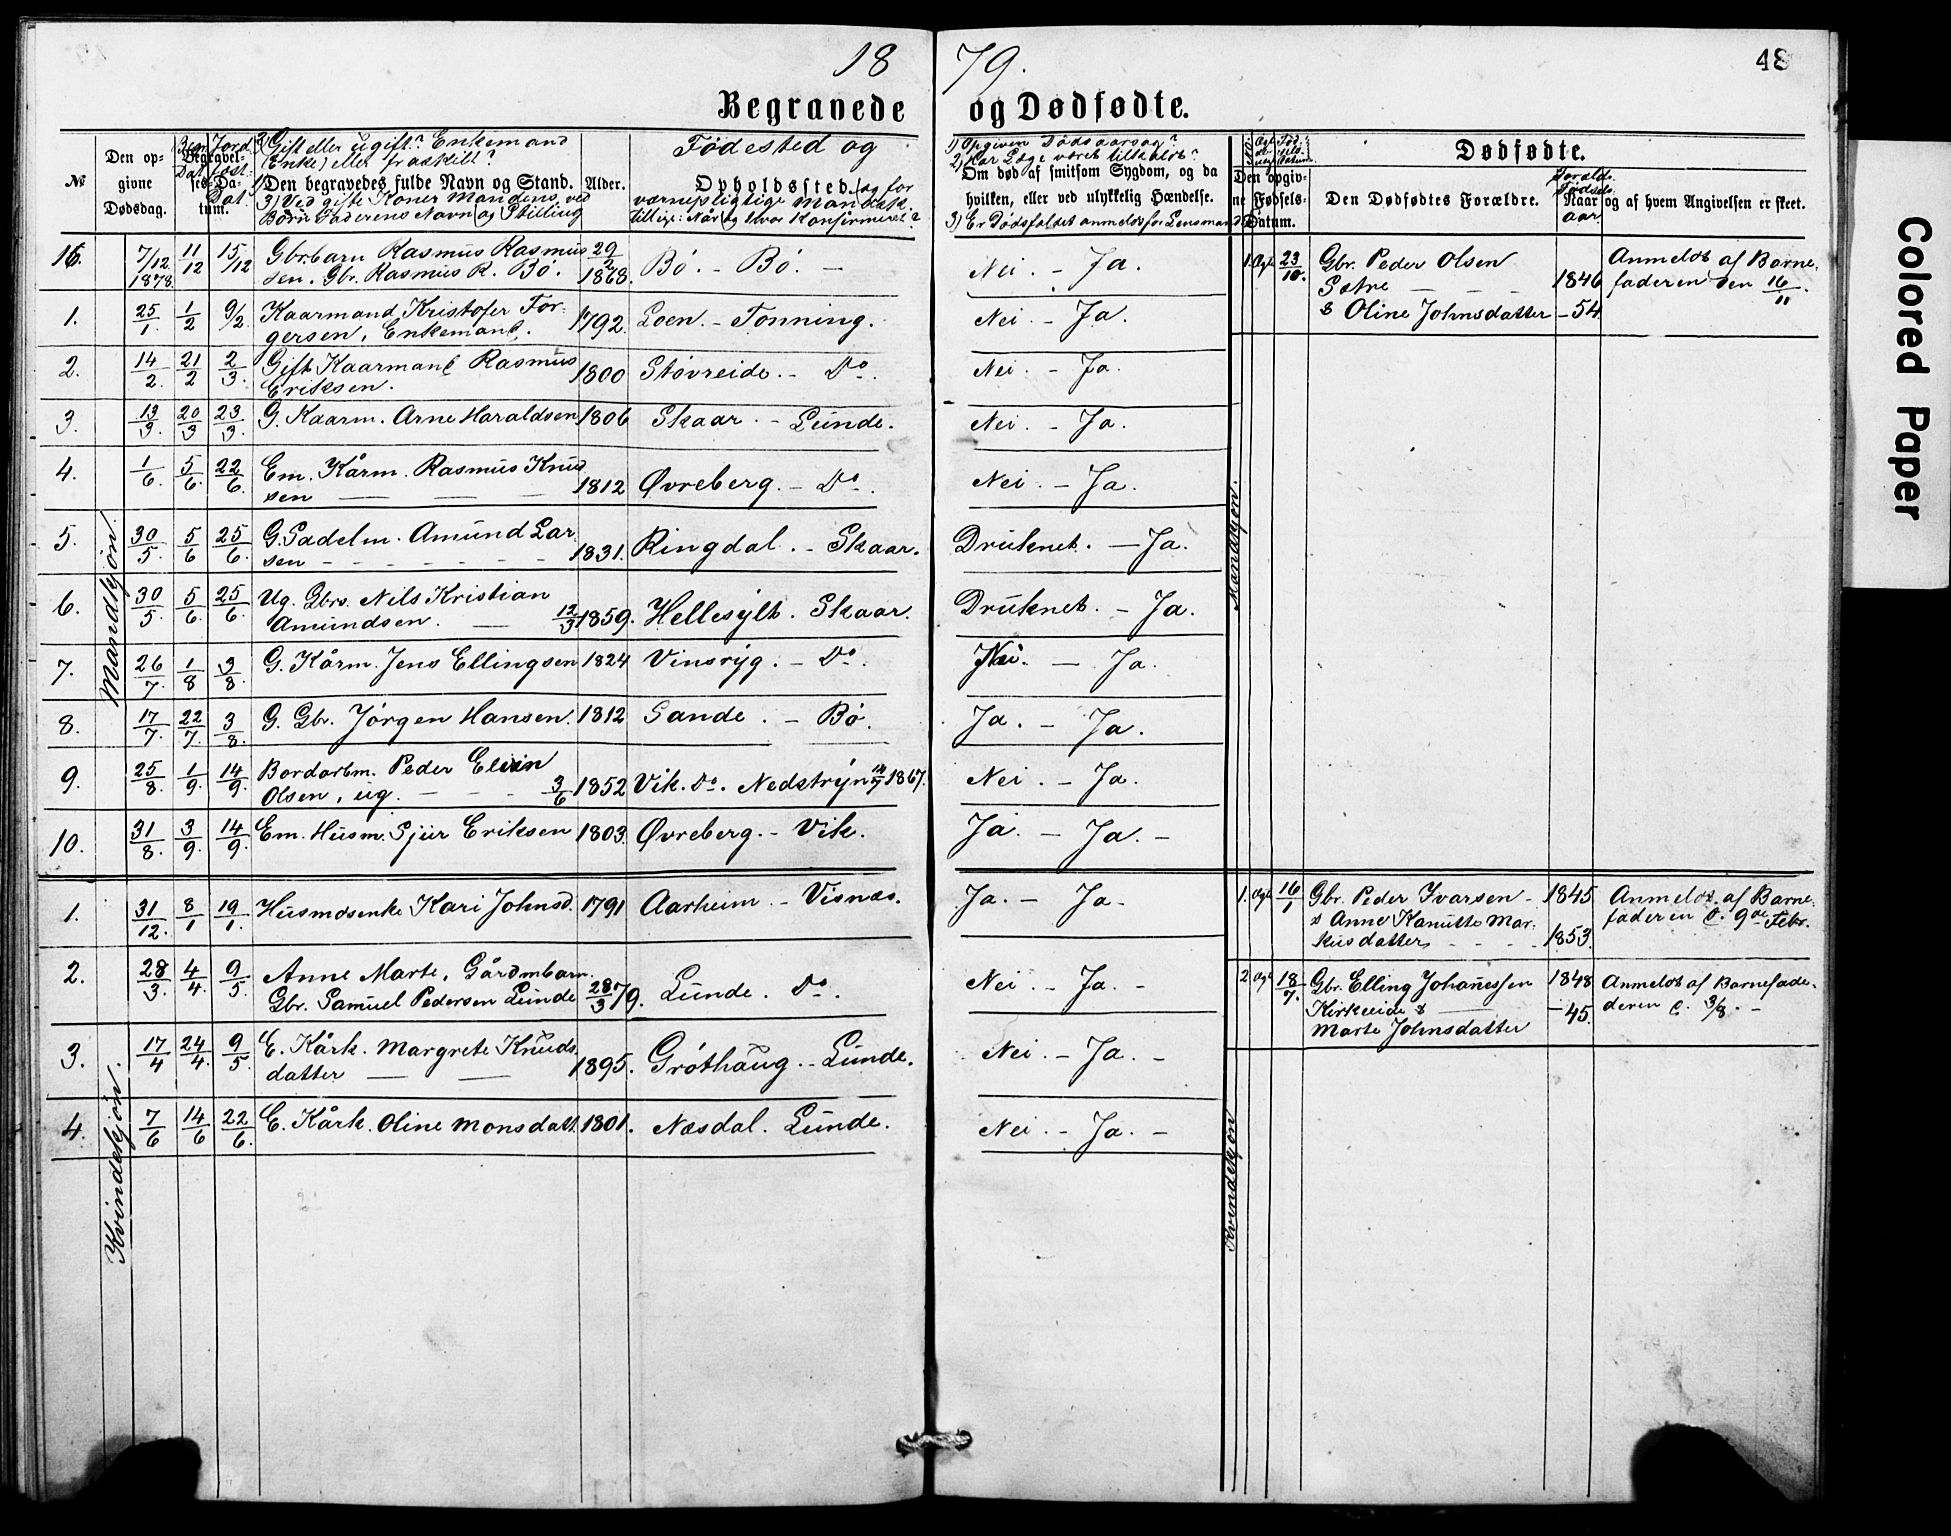 18 79.
48
Begravede og Dødfødte.
№
Den op-
givne
Dødsdag.
Begravel-
ses-Da-
tum.
Begr. Dat.
Jord
fæst.
Dat.
2) Gift eller ugift? Enkemand
(Enke) eller fraskilt?
1) Den begravedes fulde Navn og Stand.
3) Ved gifte Koner Mandens, ved
Børn Faderens Navn og Stilling
Alder.
Fødested og
Opholdssted. (og for
værnepligtige Mandsk.
tillige: Når og hvor Konfirmeret?
1) Opgiven Dødsaarsag?
2) Har Læge været tilkaldt?
Om død af smitsom Sygdom, og da
hvilken, eller ved ulykkelig Hændelse.
3) Er Dødsfaldet anmeldt for Lensmand
Den opgiv-
ne Fødsels-
Datum.
Dødfødte.
Den Dødfødtes Forældre.
Foræld.
Fødsels
aar
Naar og af hvem Angivelsen er skeet.
Mandkjøn.
16. 7/12 1878. 11/12 15/12 Gbrbarn Rasmus Rasmus
sen. Gbr. Rasmus R. Bö. 29/2 1868. Bö. - Bö. - Nei. - Ja.
1. 25/1. 1/2 9/2 Kaarmand Kristofer Tor-
gersen, Enkemand. 1792. Loen. - Tonning. Nei. - Ja.
2. 14/2. 21/2 2/3. Gift Kaarmand Rasmus
Eriksen. 1800 Støvreide. - Do. Nei. - Ja.
3. 13/3. 20/3 23/3. G. Kaarm. Arne Haraldsen 1806 Skaar. - Lunde. Nei. - Ja.
4. 1/6. 5/6. 22/6. Em. Kårm. Rasmus Knud
sen 1812 Øvreberg. - Do. Nei. - Ja.
5. 30/5. 5/6 25/6. G. Sadelm. Amund Lar
sen - 1831. Ringdal. - Skaar. Druknet. - Ja.
6. 30/5. 5/6. 25/6. Ug. Gbrs. Nils Kristian
Amundsen. 12/3 1859. Hellesylt. Skaar. Druknet. - Ja.
7. 26/7. 1/8 3/8. G. Kårm. Jens Ellingsen 1824 Vinsryg. - Do. Nei. - Ja.
8. 17/7. 22/7. 3/8. G. Gbr. Jörgen Hansen. 1812 Sande. - Bö. Ja. - Ja.
9. 25/8. 1/9. 14/9. Bordarbm. Peder
Olsen, ug. 3/6 1852 Vik. Do. Nedstryn 1867. Nei. - Ja.
10. 31/8. 3/9. 14/9. Em. Husm. Sjur Eriksen 1803. Øvreberg. - Vik. Ja. - Ja. -
Kvindekjön.
1. 31/12. 8/1 19/1. Husmdsenke Kari Johnsd. 1791 Aarheim. - Visnæs. Ja. - Ja -
2. 28/3. 4/4. 9/5. Anne Marte, Gårdmbarn.
Gbr. Samuel Pedersen Lunde 28/3 79. Lunde. Do. Nei. - Ja. -
3. 17/4 24/4. 9/5. E. Kårk. Margrete Knuds
datter 1895. Gröthaug. - Lunde. Nei. - Ja. -
4. 7/6 14/6 22/6. E. Kårk. Oline Monsdatt. 1801. Næsdal. Lunde. Nei. - Ja. -
Mandkjön.
1. Ægt. 23/10. Gbr. Peder Olsen
Sætre 1846
& Oline Johnsdatter - 54.
Anmeldt af Barne-
faderen den 16/11.
Kvindekjön
1. Ægt 16/1 Gbr. Peder Ivarsen - 1845
& Anne Kanutte Mar-
kusdatter. 1853.
Anmeldt af Barne-
faderen d. 9de Febr.
2 Ægt 18/7. Gbr. Elling Johannessen 1848
Kirkeeide & - 45.
Marte Johnsdatter
Anmeldt af Barnefade-
deren d. 3/8. -
Colored Paper